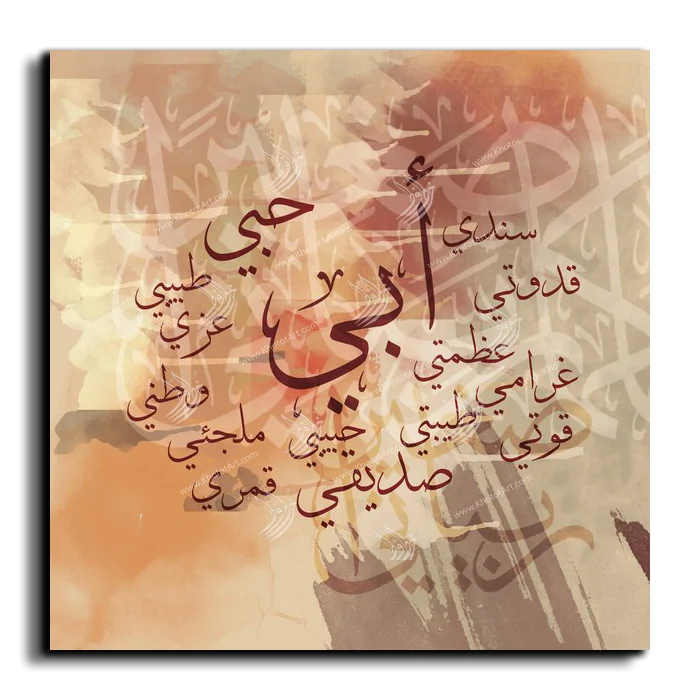 أبي
حبي
سندي
قدوتي
طبيبي
عزي
عظمتي
غرامي
وطني
طيبتي
قوتي
حبيبي
ملجئي
صديقي
قمري
www.KhototArt.com